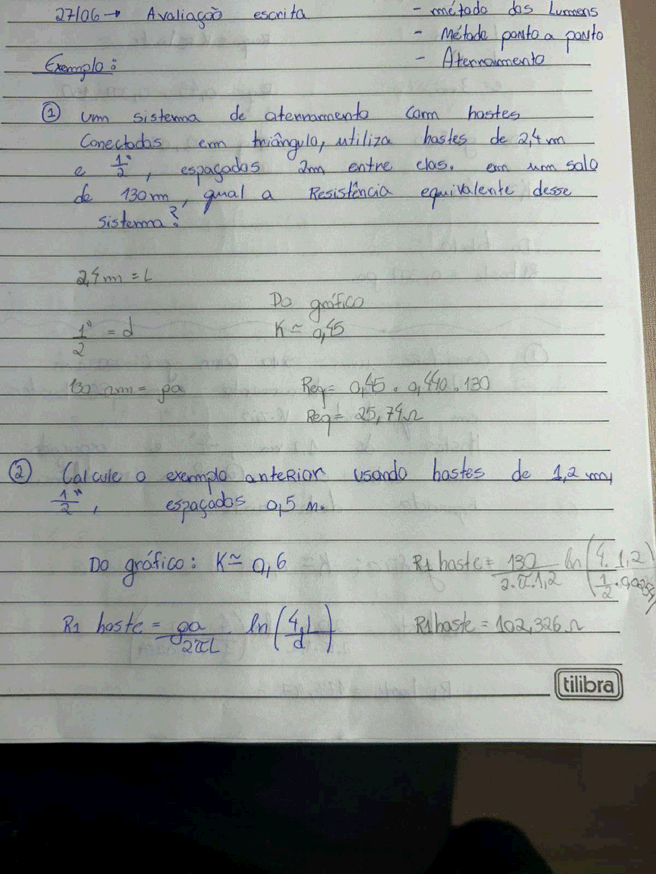 27/06 → Avaliação escrita
- método dos Lumens
- Método ponto a ponto
- Aterramento
Exemplo:
① um sistema de aterramento com hastes
Conectadas em triângulo, utiliza hastes de 2,4 m
e 1"/2, espaçadas 2m entre elas. em um solo
de 130 m, qual a Resistência equivalente desse
sistema?
2,4 m = L
Do gráfico
1"/2 = d
K ≃ 0,45
130 = ρa
Req = 0,45 . 0,440 . 130
Req = 25,74Ω
② Calcule o exemplo anteRior usando hastes de 1,2 m,
1"/2, espaçadas 0,5 m.
Do gráfico: K ≃ 0,6
R1 haste = 130/2.π.1,2 ln(4.1,2/1/2.0,0254)
R1 haste = ρa/2πL . ln(4.L/d)
R1 haste = 102,326 Ω
tilibra